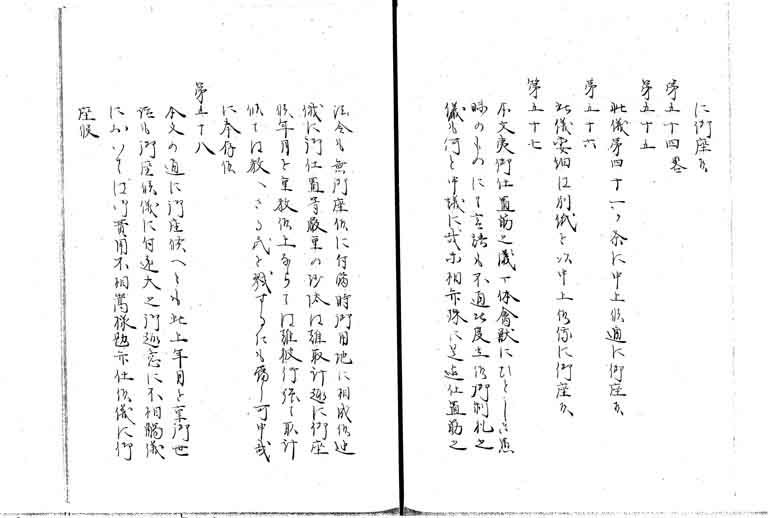 に御座候
第五十四 畧
第五十五
此儀第四十一ヶ条に申上候通に御座候
第五十六
此儀委細は別紙を以申上候儀に御座候
第五十七
本文夷御仕置筋之儀一体禽獣にひとし
ものにて言語も不通此度立候御制札之
儀も何と申儀に哉相弁殊に是迄仕置筋之
法令も無御座候に付当時御用地に相成候迚
俄に御仕置等厳重の沙汰は難取計趣に御座
候年月を重教候上ならては難被行強て取計
候ては教へさる民を戮するにも偏し可申哉
に奉存候
第五十八
本文の通に御座候へとも此上年月を重御世
話も御座候儀に付遠大之御趣意に不相觸儀
においては御費用不相嵩様勘弁仕候儀に御
座候